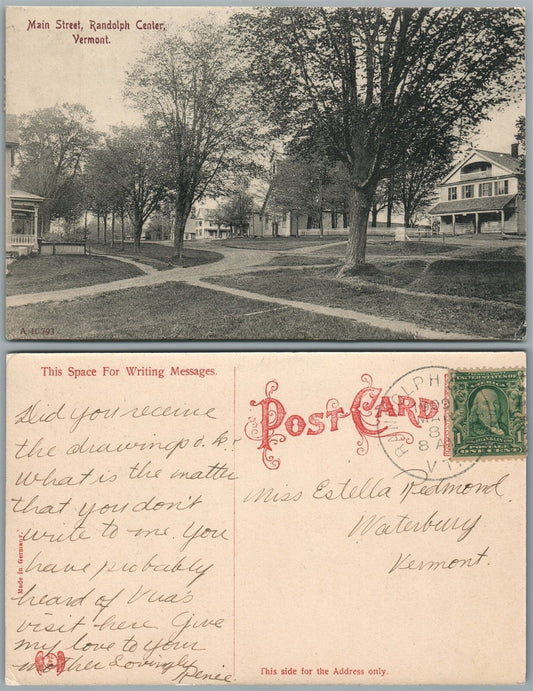 Main Street, Randolph Center,
Vermont.
A 10793
This Space For Writing Messages.
POST CARD
RANDOLPH
8
8 A
VT.
UNITED STATES
FRANKLIN
1 POSTAGE 1
ONE CENT
Did you receive
the drawing o.k.
what is the matter
that you don't
write to me. You
have probably
heard of
visit here Give
my love to your
mother Lovingly
Miss Estella Redmond.
Waterbury
Vermont.
Made in Germany.
This side for the Address only.